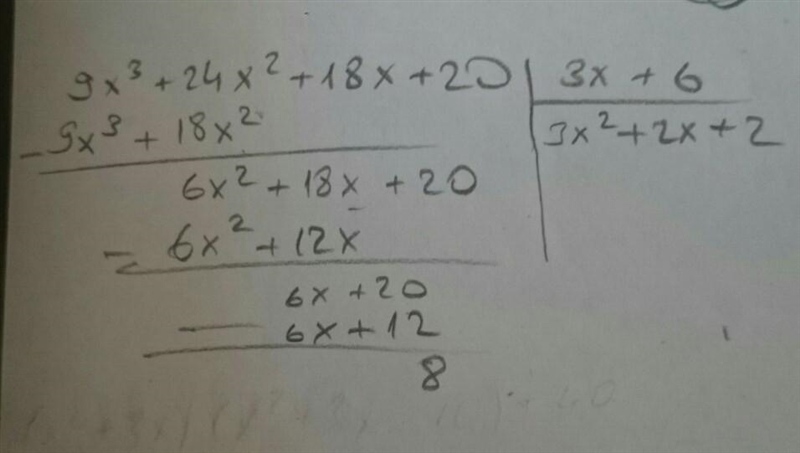 9x³ + 24x² + 18x + 20 | 3x + 6
- 9x³ + 18x² | 3x² + 2x + 2
6x² + 18x + 20
- 6x² + 12x
6x + 20
- 6x + 12
8